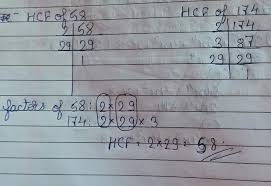 HCF of 58
2 | 58
29 | 29
1
HCF of 174
2 | 174
3 | 87
29 | 29
1
factors of 58: 2×29
174: 2×29×3
HCF = 2×29 = 58